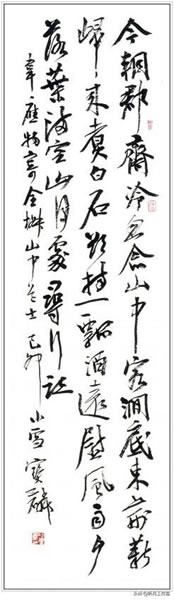 今朝郡齋冷忽念山中客澗底束荆薪
歸來煮白石欲持一瓢酒遠慰風雨夕
落葉滿空山何處尋行迹
韋應物寄全椒山中道士 己卯小雪 寶麟